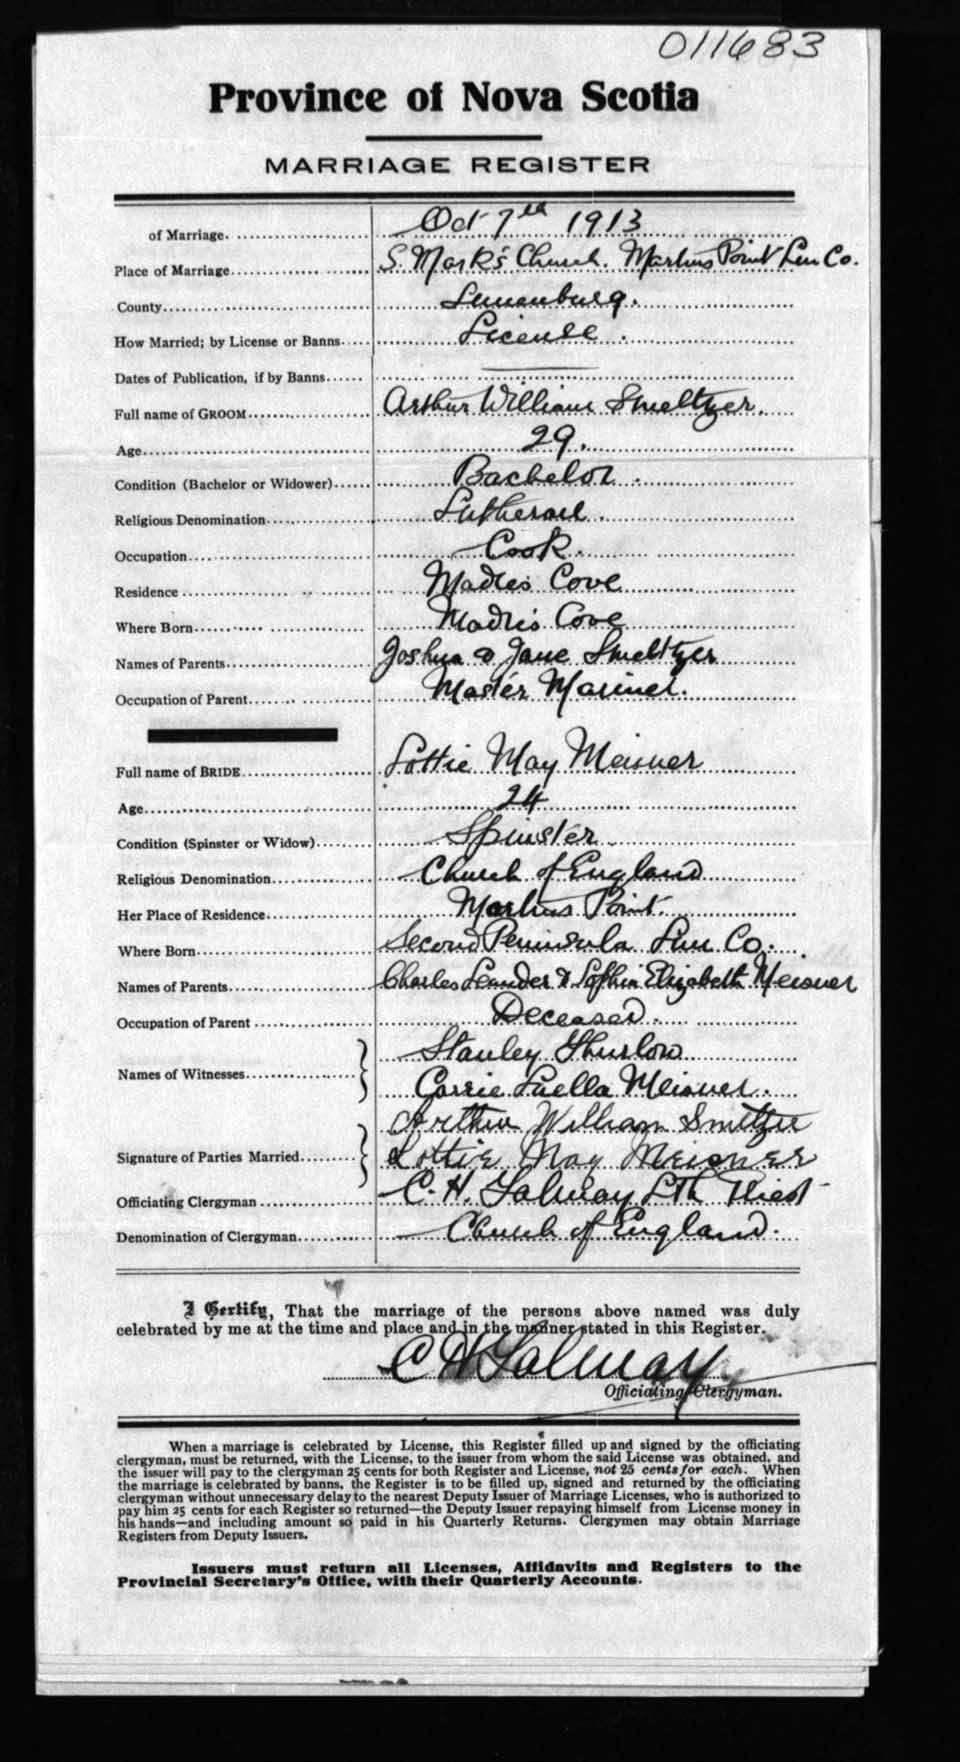 011683
Province of Nova Scotia
MARRIAGE REGISTER
of Marriage. Oct 7th 1913
Place of Marriage S. Mark's Church. Martins Point Lun Co.
County Lunenburg.
How Married; by License or Banns License.
Dates of Publication, if by Banns
Full name of GROOM Arthur William Smeltzer.
Age 29.
Condition (Bachelor or Widower) Bachelor.
Religious Denomination Lutheran.
Occupation Cook.
Residence Maders Cove
Where Born Mader's Cove
Names of Parents Joshua & Jane Smeltzer
Occupation of Parent Master Mariner.
Full name of BRIDE Lottie May Meisner
Age 24
Condition (Spinster or Widow) Spinster
Religious Denomination Church of England
Her Place of Residence Martins Point.
Where Born Second Peninsula Lun Co.
Names of Parents Charles Leander & Sophia Elizabeth Meisner
Occupation of Parent Deceased.
Names of Witnesses Stanley Thurlow
Carrie Luella Meisner.
Signature of Parties Married Arthur William Smeltzer
Lottie May Meisner
Officiating Clergyman C. H. Talmay LTh Priest
Denomination of Clergyman Church of England.
I Certify, That the marriage of the persons above named was duly
celebrated by me at the time and place and in the manner stated in this Register.
C H Talmay
Officiating Clergyman.
When a marriage is celebrated by License, this Register filled up and signed by the officiating
clergyman, must be returned, with the License, to the issuer from whom the said License was obtained, and
the issuer will pay to the clergyman 25 cents for both Register and License, not 25 cents for each. When
the marriage is celebrated by banns, the Register is to be filled up, signed and returned by the officiating
clergyman without unnecessary delay to the nearest Deputy Issuer of Marriage Licenses, who is authorized to
pay him 25 cents for each Register so returned—the Deputy Issuer repaying himself from License money in
his hands—and including amount so paid in his Quarterly Returns. Clergymen may obtain Marriage
Registers from Deputy Issuers.
Issuers must return all Licenses, Affidavits and Registers to the
Provincial Secretary's Office, with their Quarterly Accounts.